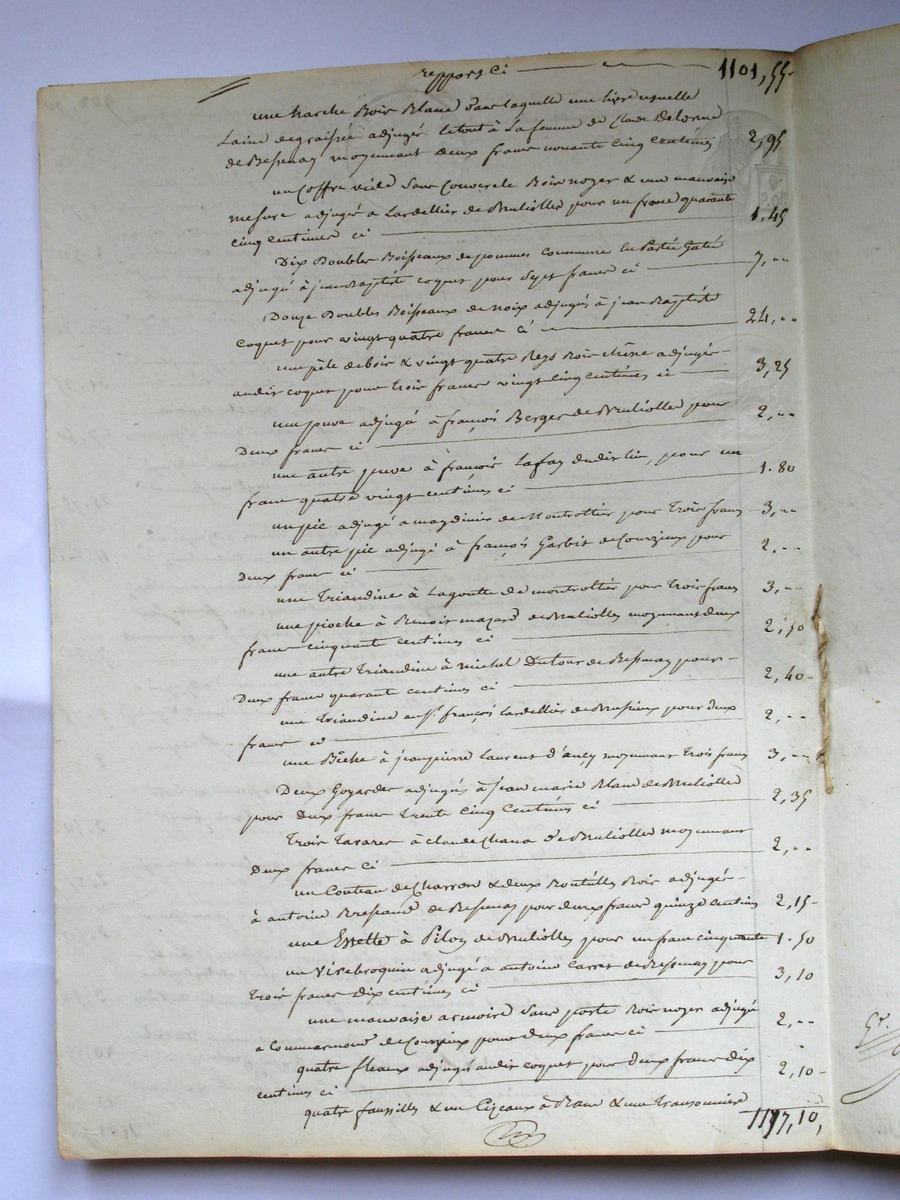 report ci 1101,55
une harche Bois Blanc dans laquelle une livre usuelle
Laine degraissée adjugés le tout à la femme de Claude Delorme
de Bessenay moyennant deux francs nonante cinq centimes 2,95
un Coffre vielé sans Couvercle Bois noyer & une mauvaise
mesure adjugé a Lardellier de Brullioles pour un franc quarante
cinq centimes ci 1.45
Dix Doubles Boisseaux de pommes Commune En Partie Gaté
adjugé à jean Baptiste coquet pour Sept francs ci 7,--
Douze Doubles Boisseaux de noix adjugés à jean Baptiste
coquet pour vingt quatre francs ci 24,--
une pile de bois & vingt quatre Reys Bois chêne adjugés
audit coquet pour Trois francs vingt cinq centimes ci 3,25
une puve adjugé à françois Berger de Brullioles pour
Deux francs ci 2,--
une autre puve à françois Lafay dudit lieu, pour un
franc quatre vingt centimes ci 1.80
un pic adjugé a magdinier de Montrottier pour Trois francs 3,--
un autre pic adjugé à françois Garbit de Courzieux pour
Deux francs ci 2,--
une Triandine à Lagoutte de montrottier pour Trois francs 3,--
une pioche à Benoit mazard de Brullioles moyennant deux
francs cinquante centimes ci 2,50
une autre Triandine à michel Dutour de Bessenay pour
Deux francs quarante centimes ci 2,40
une Triandine au Sr. françois Lardellier de Brussieux pour deux
francs ci 2,--
une Bêche à jean pierre Laurent d'ancy moyennant Trois francs 3,--
Deux Goyardes adjugés à jean marie Blanc de Brullioles
pour Deux francs Trente Cinq Centimes ci 2,35
Trois Tarares à claude Chana de Brullioles moyennant
Deux francs Ci 2,--
un Couteau de Charron & deux Bouteilles Bois adjugés
à antoine Bressand de Bessenay pour deux francs quinze centimes 2,15
une Essette à Pilon de Brullioles pour un franc cinquante 1.50
un Virebroquin adjugé a antoine Carret de Bessenay pour
Trois francs Dix centimes ci 3,10
une mauvaise armoire Sans porte Bois noyer adjugé
a Commarmond de Courzieux pour deux francs ci 2,--
quatre fleaux adjugés audit coquet pour deux francs dix
centimes ci 2,10
quatre faussilles & un Cizeaux à Banc & une Transonnière
1197,10,